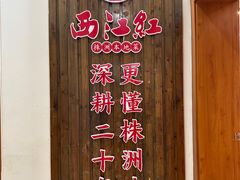 西江红
株洲本地菜
更懂株洲
深耕二十